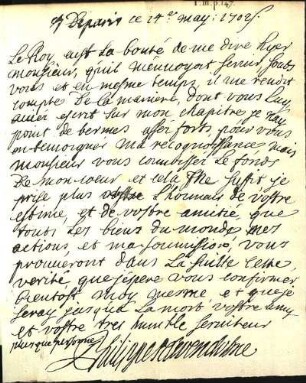 à Paris ce 14e may 1702
Le Roy eust La bonté de me dire hyer
monsieur, qu'il m'envoyoit servir soubs
vous et en mesme temps, il me rendit
compte De la maniere, dont vous Luy
aviés escrit sur mon chapitre je n'ay
point de termes assés forts pour vous
en temoigner ma recognoissance, mais
monsieur vous connoissés Le fonds
De mon coeur et cela me suffit je
prise plus L'honneur de vostre
estime, et de vostre amitié, que
touts Les biens du monde mes
actions, et ma soumission, vous
prouveront dans La suitte cette
verité, que j'espere vous confirmer
bientost, moy mesme et que je
seray jusqu'a La mort vostre amy
et vostre tres humble serviteur
plus que personne
Philippe de Vendosme